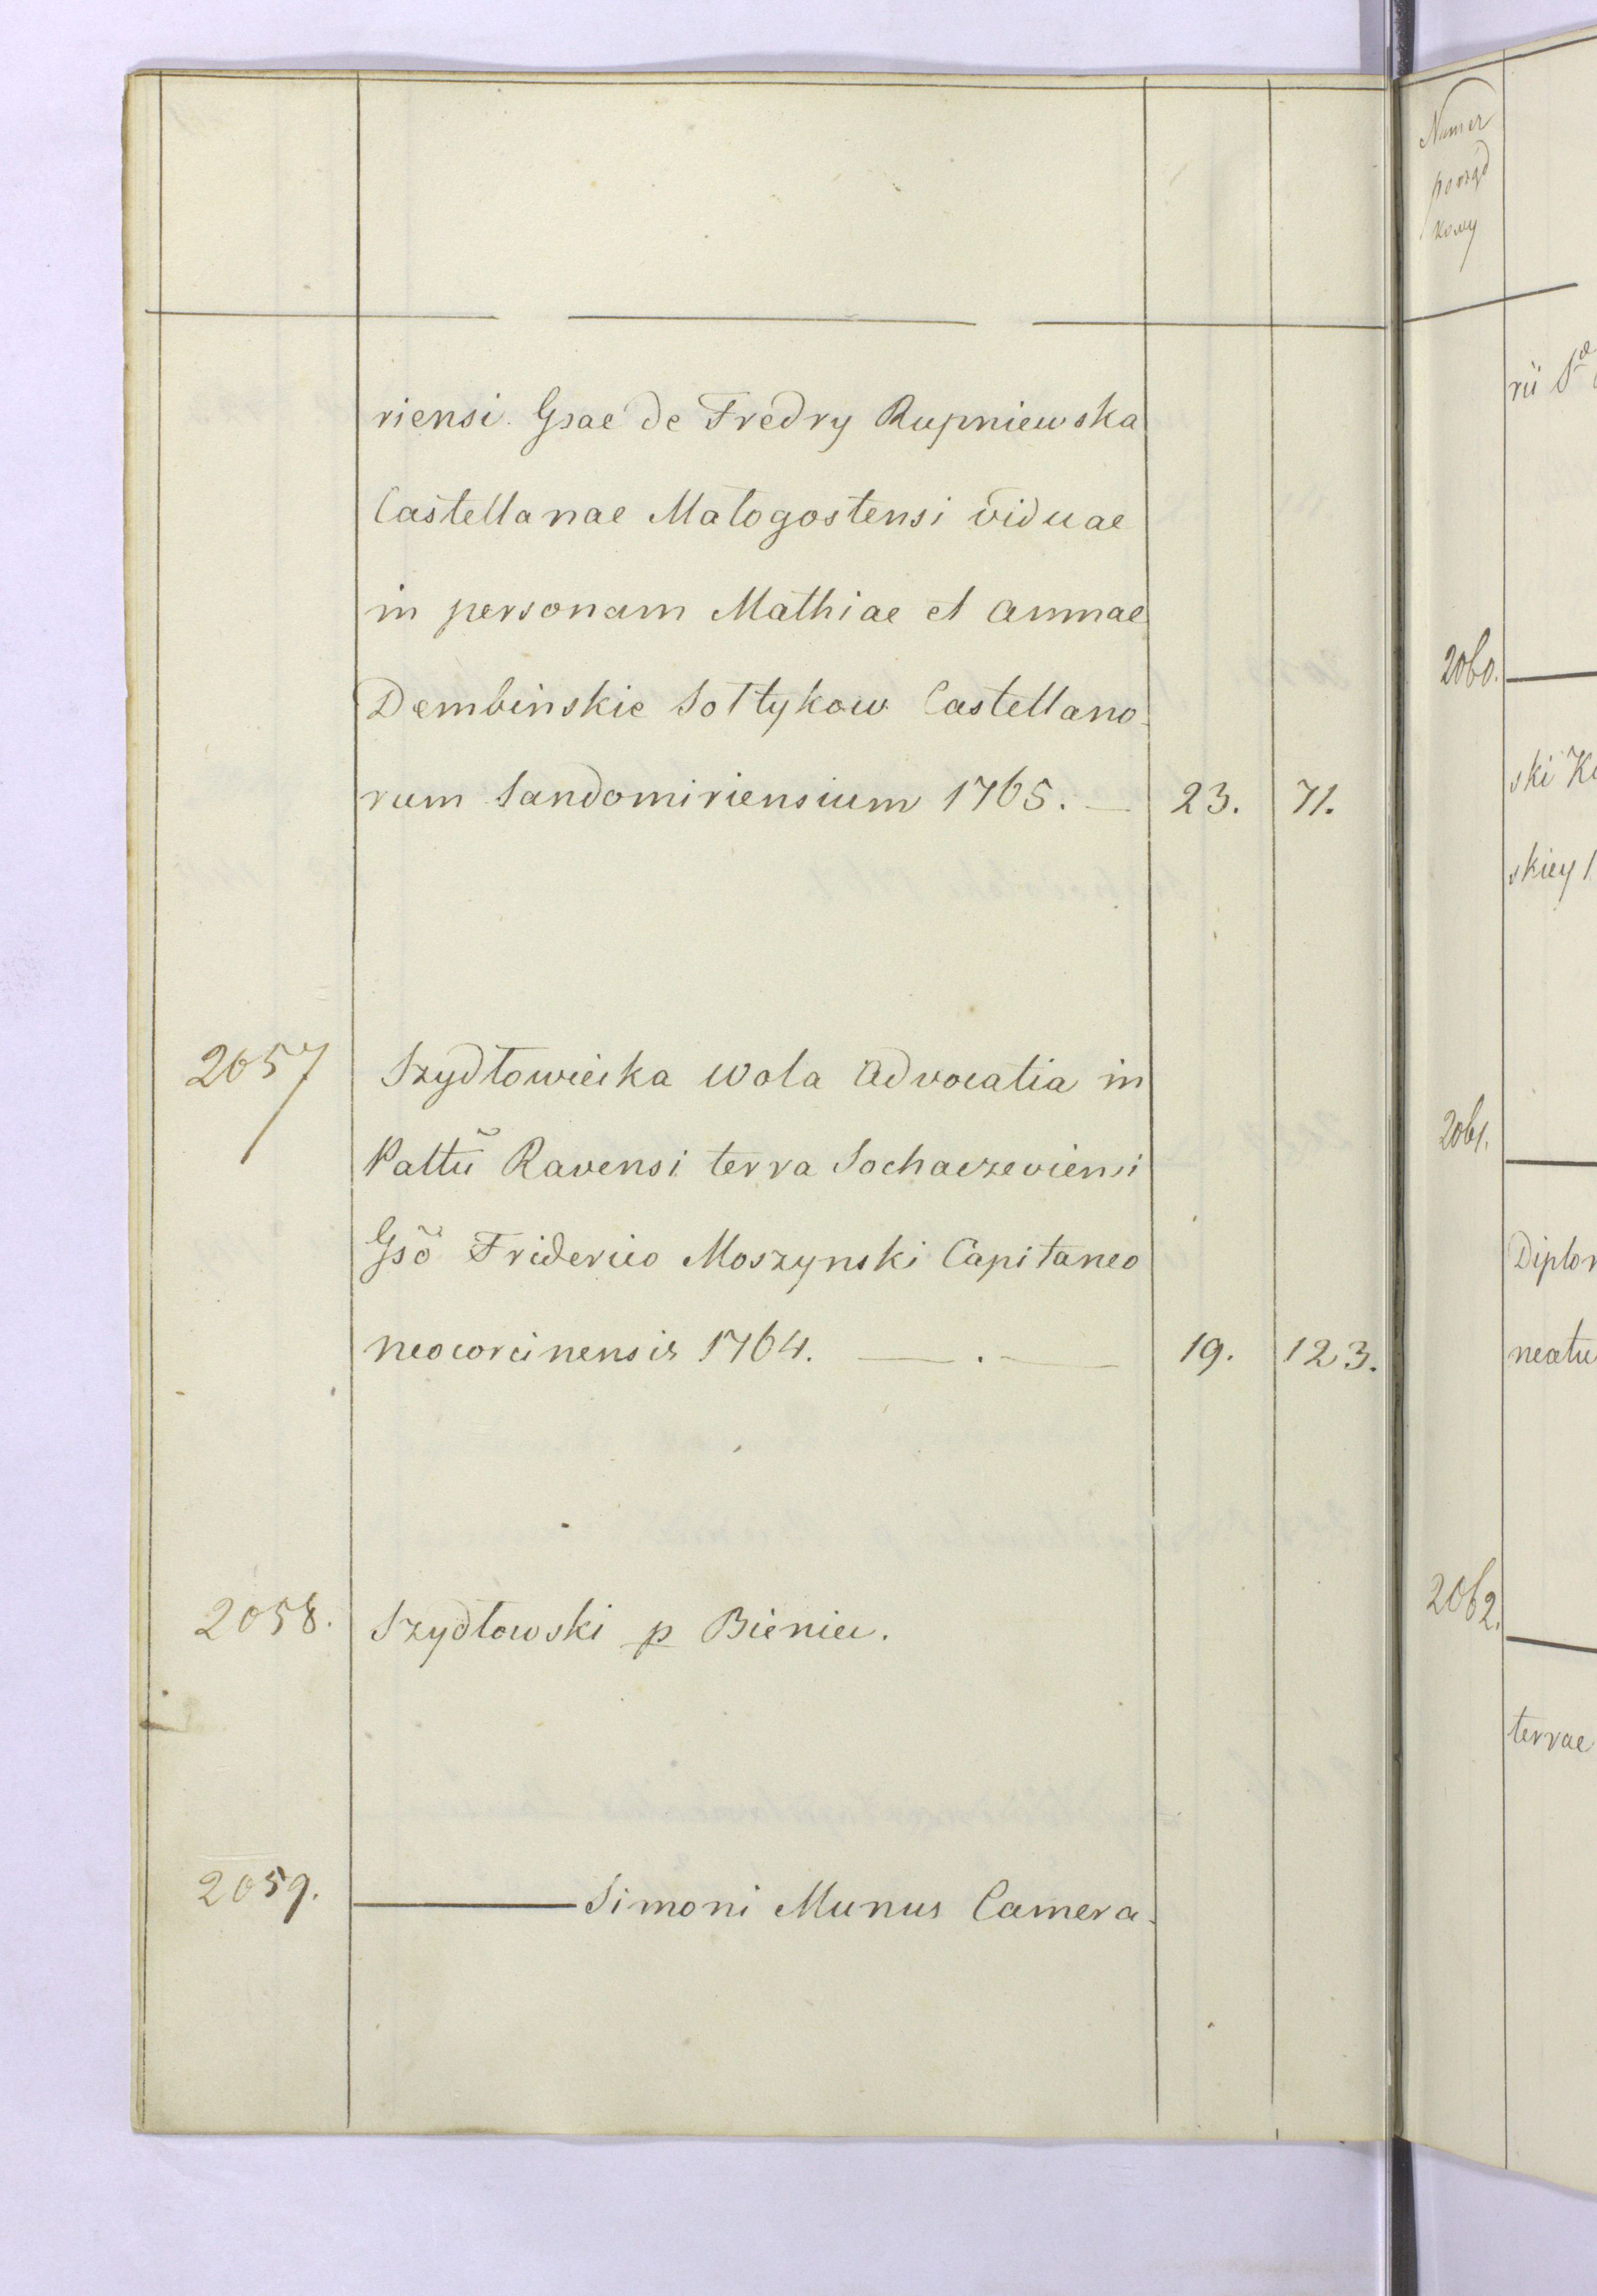 riensi. Gsae de Fredry Rupniewska
Castellanae Malogostensi viduae
in personam Mathiae et Annae
Dembinskie Sołtykow Castellano-
rum Sandomiriensium 1765. — 23. 71.
2057 Szydłowiecka Wola Advocatia in
Pattũ Ravensi terra Sochaczeviensi
Gsõ Friderico Moszynski Capitaneo
neocorcinensis 1764. — . — 19. 123.
2058. Szydłowski p Bieniec.
2059. ——— Simoni Munus Camera-
Numer
porząd
kowy
rii
2060.
ski
skiey
2061.
Diplom
neatu
2062.
terrae